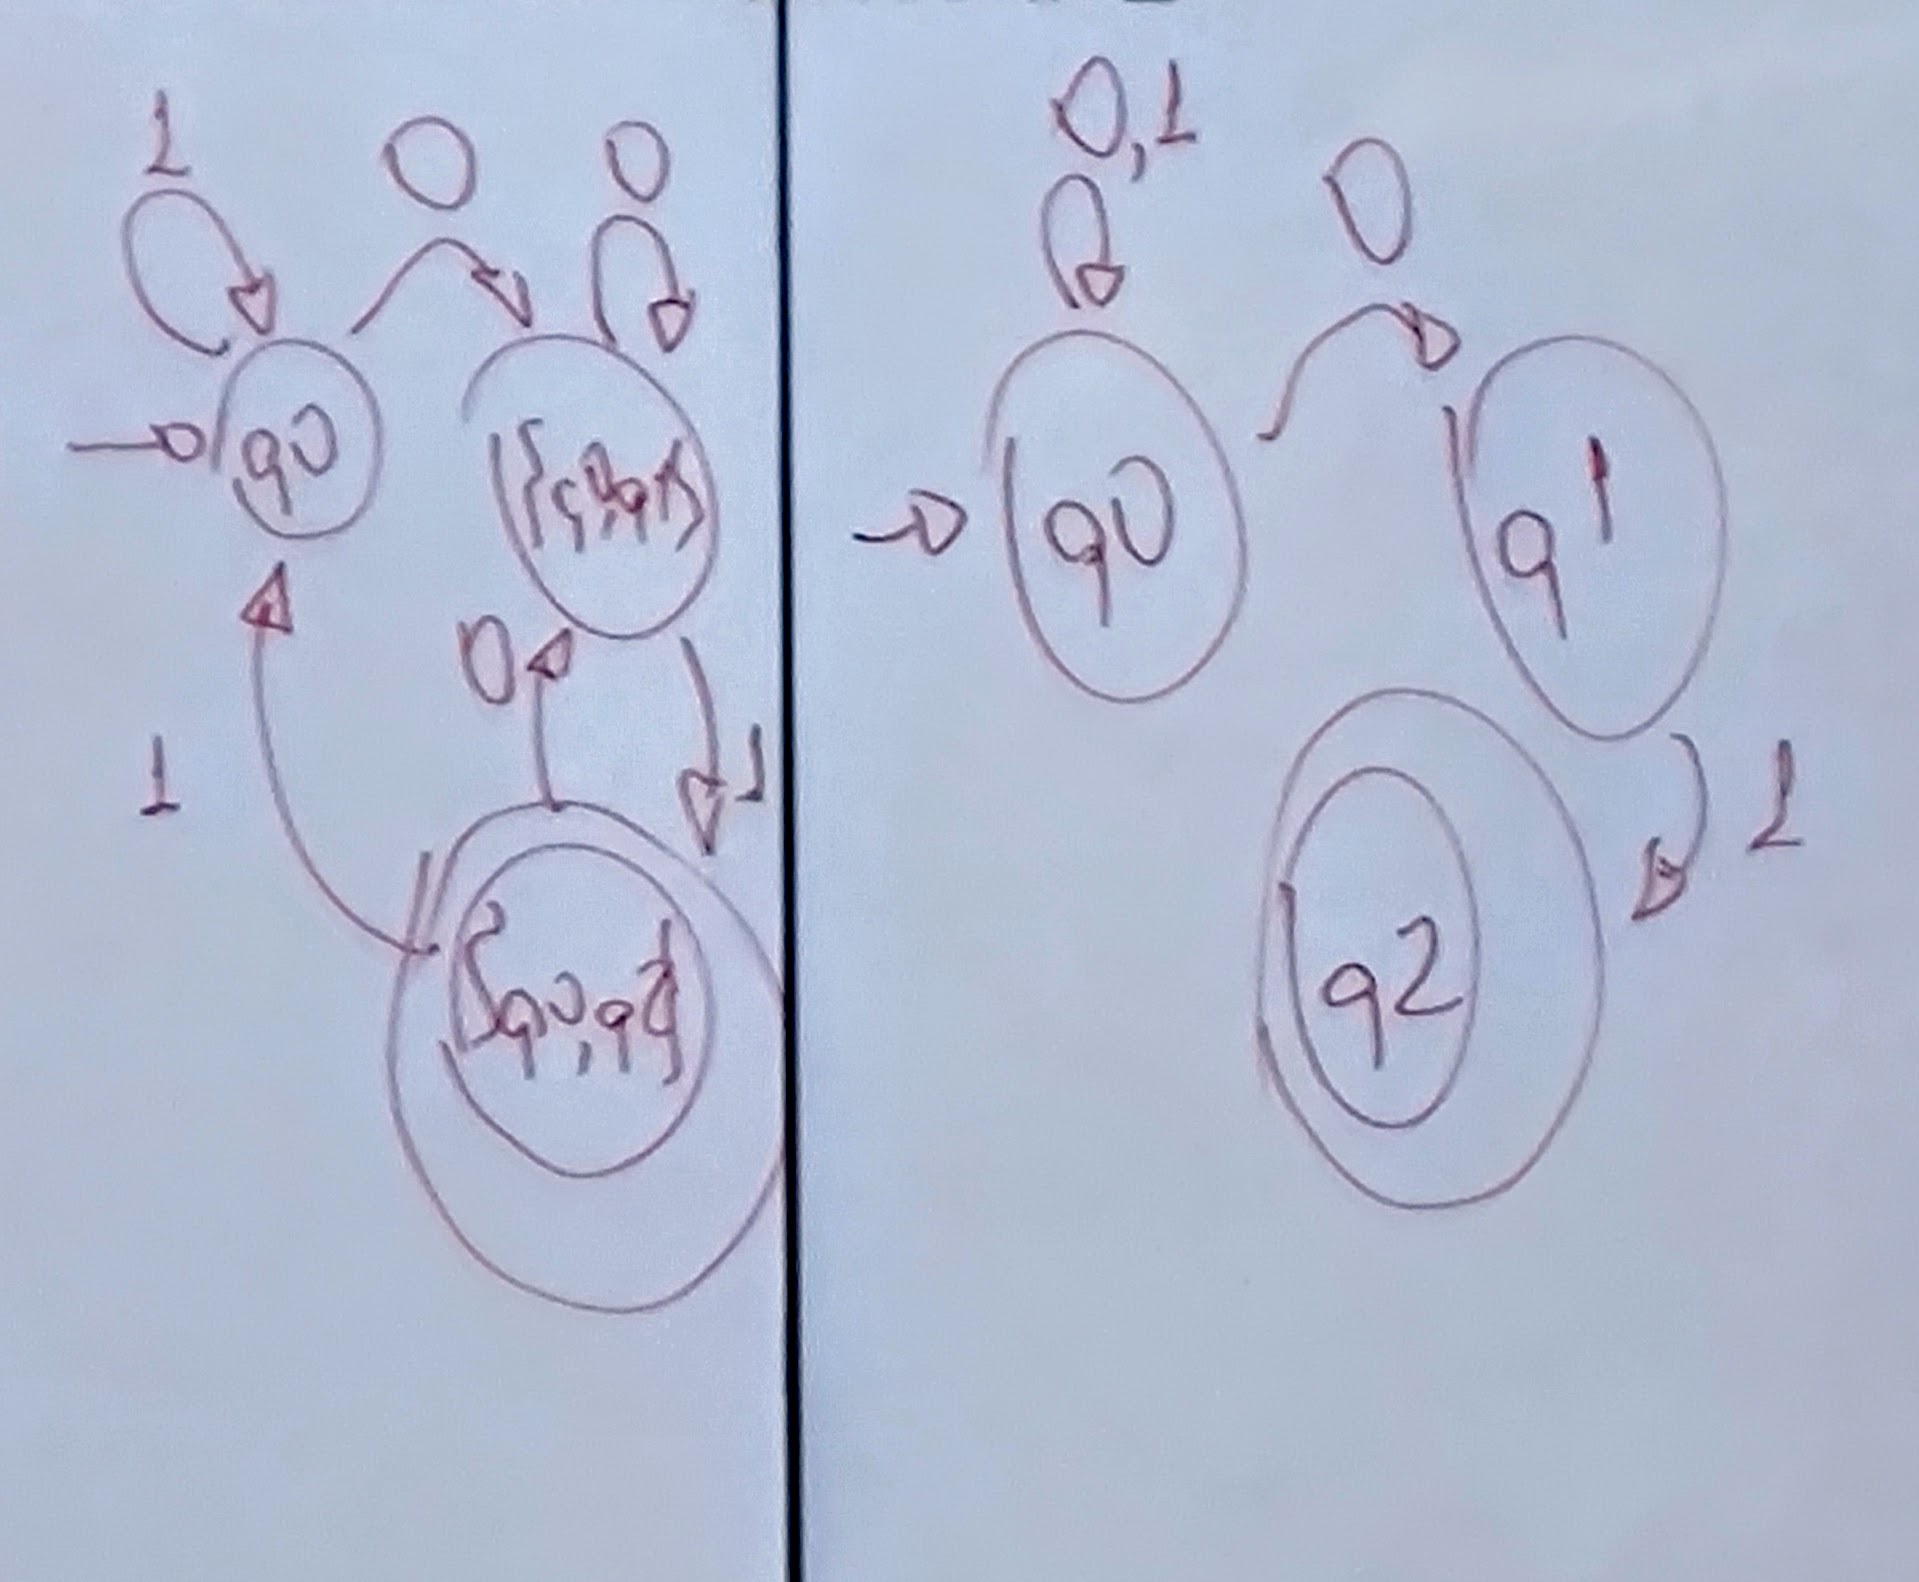 1 0 0
q0 {q0,q1}
0
1 1
{q0,q2}
0,1
0
q0 q1
1
q2